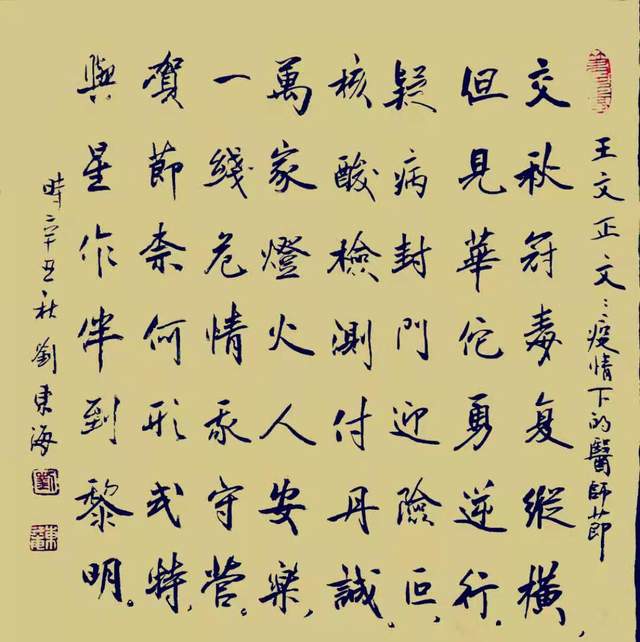 王文正文：疫情下的醫師節
交秋冠毒复縱橫，
但見華佗勇逆行。
疑病封門迎險巨，
核酸檢測付丹誠。
萬家燈火人安樂，
一綫危情我守营。
賀節柰何形式特，
與星作伴到黎明。
時辛丑秋 劉東海